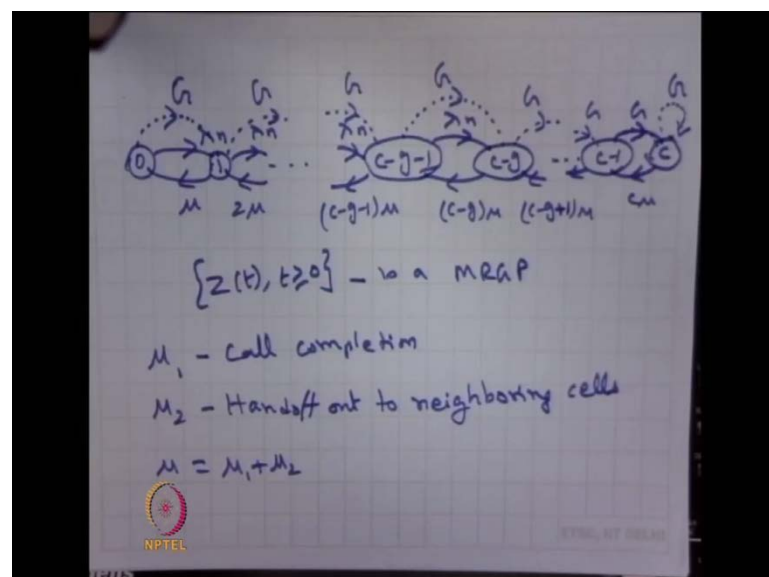 G G G G G G G
λn λn λn λn
0 1 ... c-g-1 c-g ... c-1 c
μ 2μ (c-g-1)μ (c-g)μ (c-g+1)μ cμ
{Z(t), t≥0} - is a MRGP
μ₁ - Call completion
μ₂ - Handoff out to neighboring cells
μ = μ₁+μ₂
NPTEL